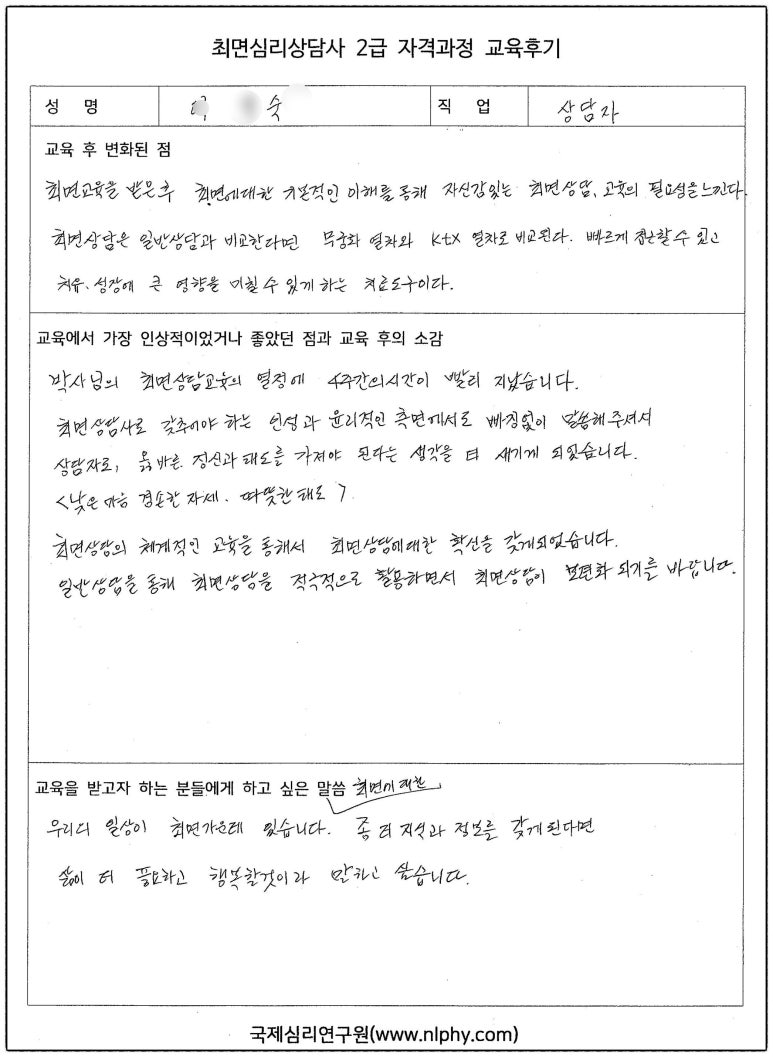 최면심리상담사 2급 자격과정 교육후기
성 명 숙 직 업 상담자
교육 후 변화된 점
최면교육을 받은후 최면에대한 기본적인 이해를 통해 자신감있는 최면상담, 교육의 필요성을 느낀다.
최면상담은 일반상담과 비교한다면 무궁화 열차와 KTX 열차로 비교된다. 빠르게 접근할 수 있고
치유.성장에 큰 영향을 미칠 수 있게 하는 치료도구이다.
교육에서 가장 인상적이었거나 좋았던 점과 교육 후의 소감
박사님의 최면상담교육의 열정에 4주간의시간이 빨리 지났습니다.
최면상담사로 갖추어야 하는 인성과 윤리적인 측면에서도 빠짐없이 말씀해 주셔서
상담자로, 옳바른 정신과 태도를 가져야 된다는 생각을 더 새기게 되었습니다.
<낮은 마음 겸손한 자세. 따뜻한 태도>
최면상담의 체계적인 교육을 통해서 최면상담에대한 확신을 갖게되었습니다.
일반상담을 통해 최면상담을 적극적으로 활용하면서 최면상담이 보편화 되기를 바랍니다.
교육을 받고자 하는 분들에게 하고 싶은 말씀 최면에 대한
우리의 일상이 최면가운데 있습니다. 좀 더 지식과 정보를 갖게 된다면
삶이 더 풍요하고 행복할것이라 말하고 싶습니다.
국제심리연구원(www.nlphy.com)